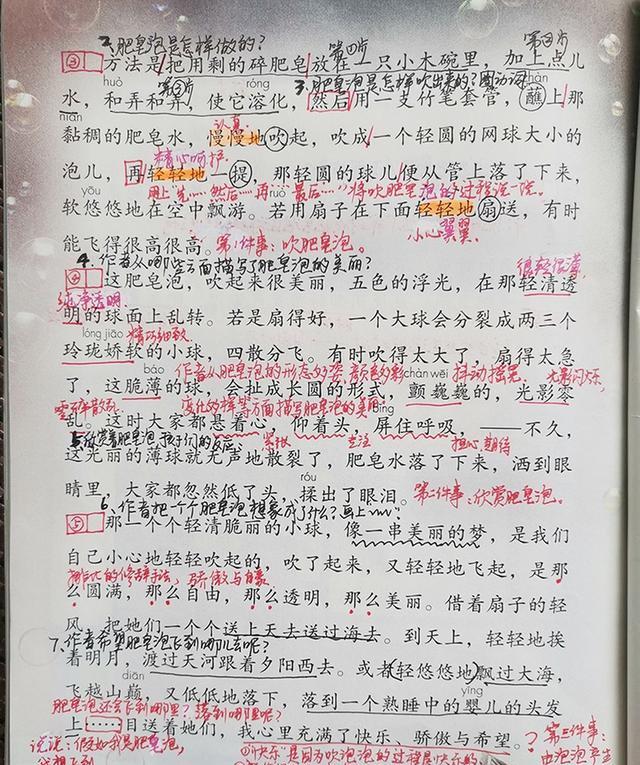 2、肥皂泡是怎样做的?
第①步
第②步
③ 方法是把用剩的碎肥皂放在一只小木碗里,加上点儿
huò róng
3、肥皂泡是怎样吹出来的?圈动词
zhàn
水,和弄和弄,使它溶化,然后用一支竹笔套管,蘸上那
nián
认真
黏稠的肥皂水,慢慢地吹起,吹成一个轻圆的网球大小的
精心呵护
泡儿,再轻轻地一提,那轻圆的球儿便从管上落了下来,
用上"先……然后……再……最后……"将吹肥皂泡的过程说一说。
yōu ruò
软悠悠地在空中飘游。若用扇子在下面轻轻地扇送,有时
小心翼翼
能飞得很高很高。
第1件事:吹肥皂泡。
4.作者从哪些方面描写了肥皂泡的美丽?
很轻很薄
④ 这肥皂泡,吹起来很美丽,五色的浮光,在那轻清透
纯净透明
明的球面上乱转。若是扇得好,一个大球会分裂成两三个
lóng jiāo
精巧细致
玲珑娇软的小球,四散分飞。有时吹得太大了,扇得太急
báo
作者从肥皂泡的形态的姿,颜色的彩
chàn wēi
抖动摇晃
光影闪烁
了,这脆薄的球,会扯成长圆的形式,颤巍巍的,光影零
零碎散乱
变化的样等方面描写肥皂泡的美丽
bǐng
乱。这时大家都悬着心,仰着头,屏住呼吸,——不久,
紧张
专注
担心期待
这光丽的薄球就无声地散裂了,肥皂水落了下来,洒到眼
róu
睛里,大家都忽然低了头,揉出了眼泪。
第二件事:欣赏肥皂泡。
6、作者把一个个肥皂泡想象成了什么?画上
⑤ 那一个个轻清脆丽的小球,像一串美丽的梦,是我们
自己小心地轻轻吹起的,吹了起来,又轻轻地飞起,是那
排比的修辞手法,骄傲与自豪
么圆满,那么自由,那么透明,那么美丽。借着扇子的轻
风,把她们一个个送上天去送过海去。到天上,轻轻地挨
7、作者希望肥皂泡飞到哪儿去呢?
着明月,渡过天河跟着夕阳西去。或者轻悠悠地飘过大海,
diān yīng
飞越山巅,又低低地落下,落到一个熟睡中的婴儿的头发
肥皂泡还会飞到哪里?落到哪里呢?
上……目送着她们,我心里充满了快乐、骄傲与希望。
第三件事:
说说:假如我是肥皂泡,
①"快乐"是因为吹泡泡的过程是快乐的
由泡泡产生